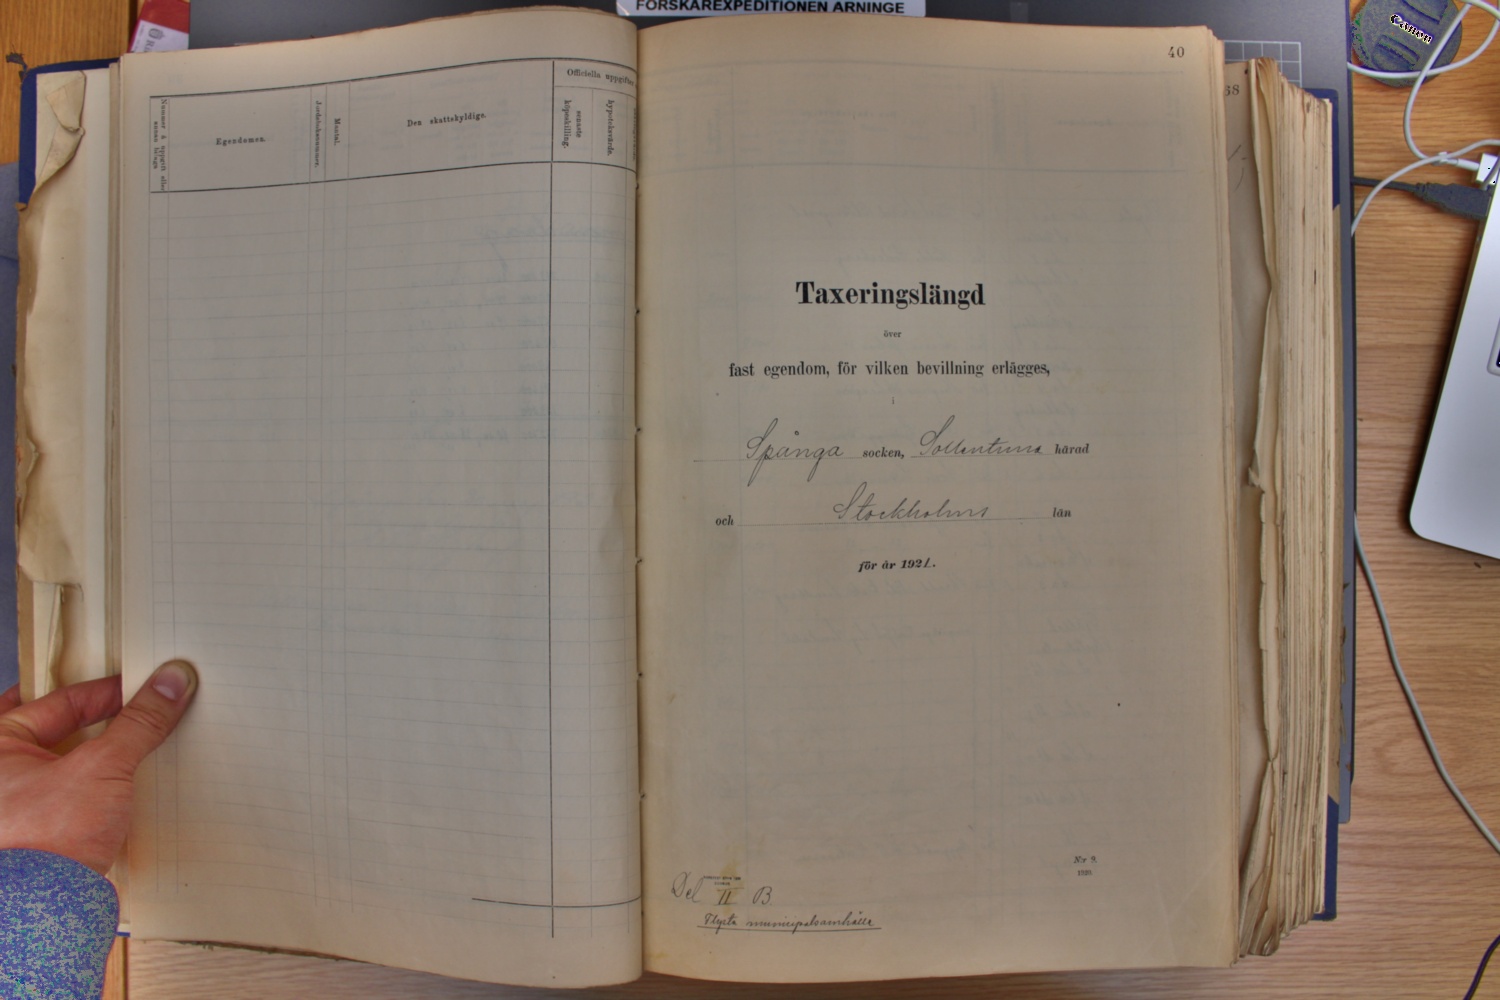 FORSKAREXPEDITIONEN ARNINGE
Canon
Nummer å uppgift eller
Egendomen.
Jordeboksnummer.
Mantal.
Den skattskyldige.
Officiella uppgifter
senaste köpeskilling.
hypoteksvärde.
40
68
Taxeringslängd
över
fast egendom, för vilken bevillning erlägges,
i
Spånga socken, Sollentuna härad
och Stockholms län
för år 1921.
N:r 9.
1920.
Del II B.
Flysta municipalsamhälle